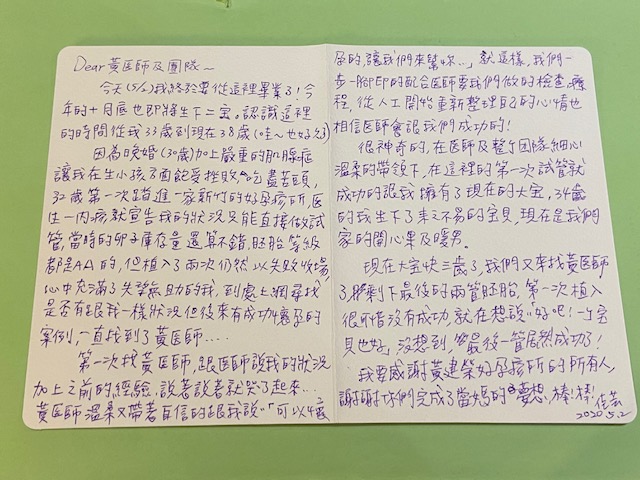 Dear 黃医師及團隊~
今天(5/2)我終於要從這裡畢業了!今
年的十月底也即將生下二宝。認識這裡
的時間從我33歲到現在38歲(哇~也好久)
因為晚婚(30歲)加上嚴重的肌腺症
讓我在生小孩了面飽受挫敗、吃盡苦頭,
32歲第一次踏進一家新竹的好孕診所,医
生一內診就宣告我的狀況只能直接做試
管,當時的卵子庫存量還算不錯,胚胎等級
都是AA的,但植入了兩次仍然以失敗收場,
心中充滿了失望無助的我,到處上網尋找
是否有跟我一樣狀況但後來有成功懷孕的
案例,一直找到了黃医師....
第一次找黃医師,跟医師說我的狀況
加上之前的經驗,說著說著就哭了起來...
黃医師溫柔又帶著自信的跟我說:「可以懷
孕的,讓我們來幫妳...」就這樣,我們一
步一腳印的配合医師要我們做的檢查、療
程,從人工開始重新整理自己的心情也
相信医師會讓我們成功的!
很神奇的,在医師及整個團隊細心
溫柔的帶領下,在這裡的第一次試管就
成功的讓我擁有了現在的大宝,34歲
的我生下了來之不易的宝貝,現在是我們
家的開心果及暖男。
現在大宝快三歲了,我們又來找黃医師
了,剩下最後的兩管胚胎,第一次植入
很可惜沒有成功,就在想說"好吧!一個宝
貝也好",沒想到"最後一管居然成功了!
我要感謝黃建榮好孕診所的所有人,
謝謝你們完成了當媽的夢想,棒!棒!佳芸
2020.5.2